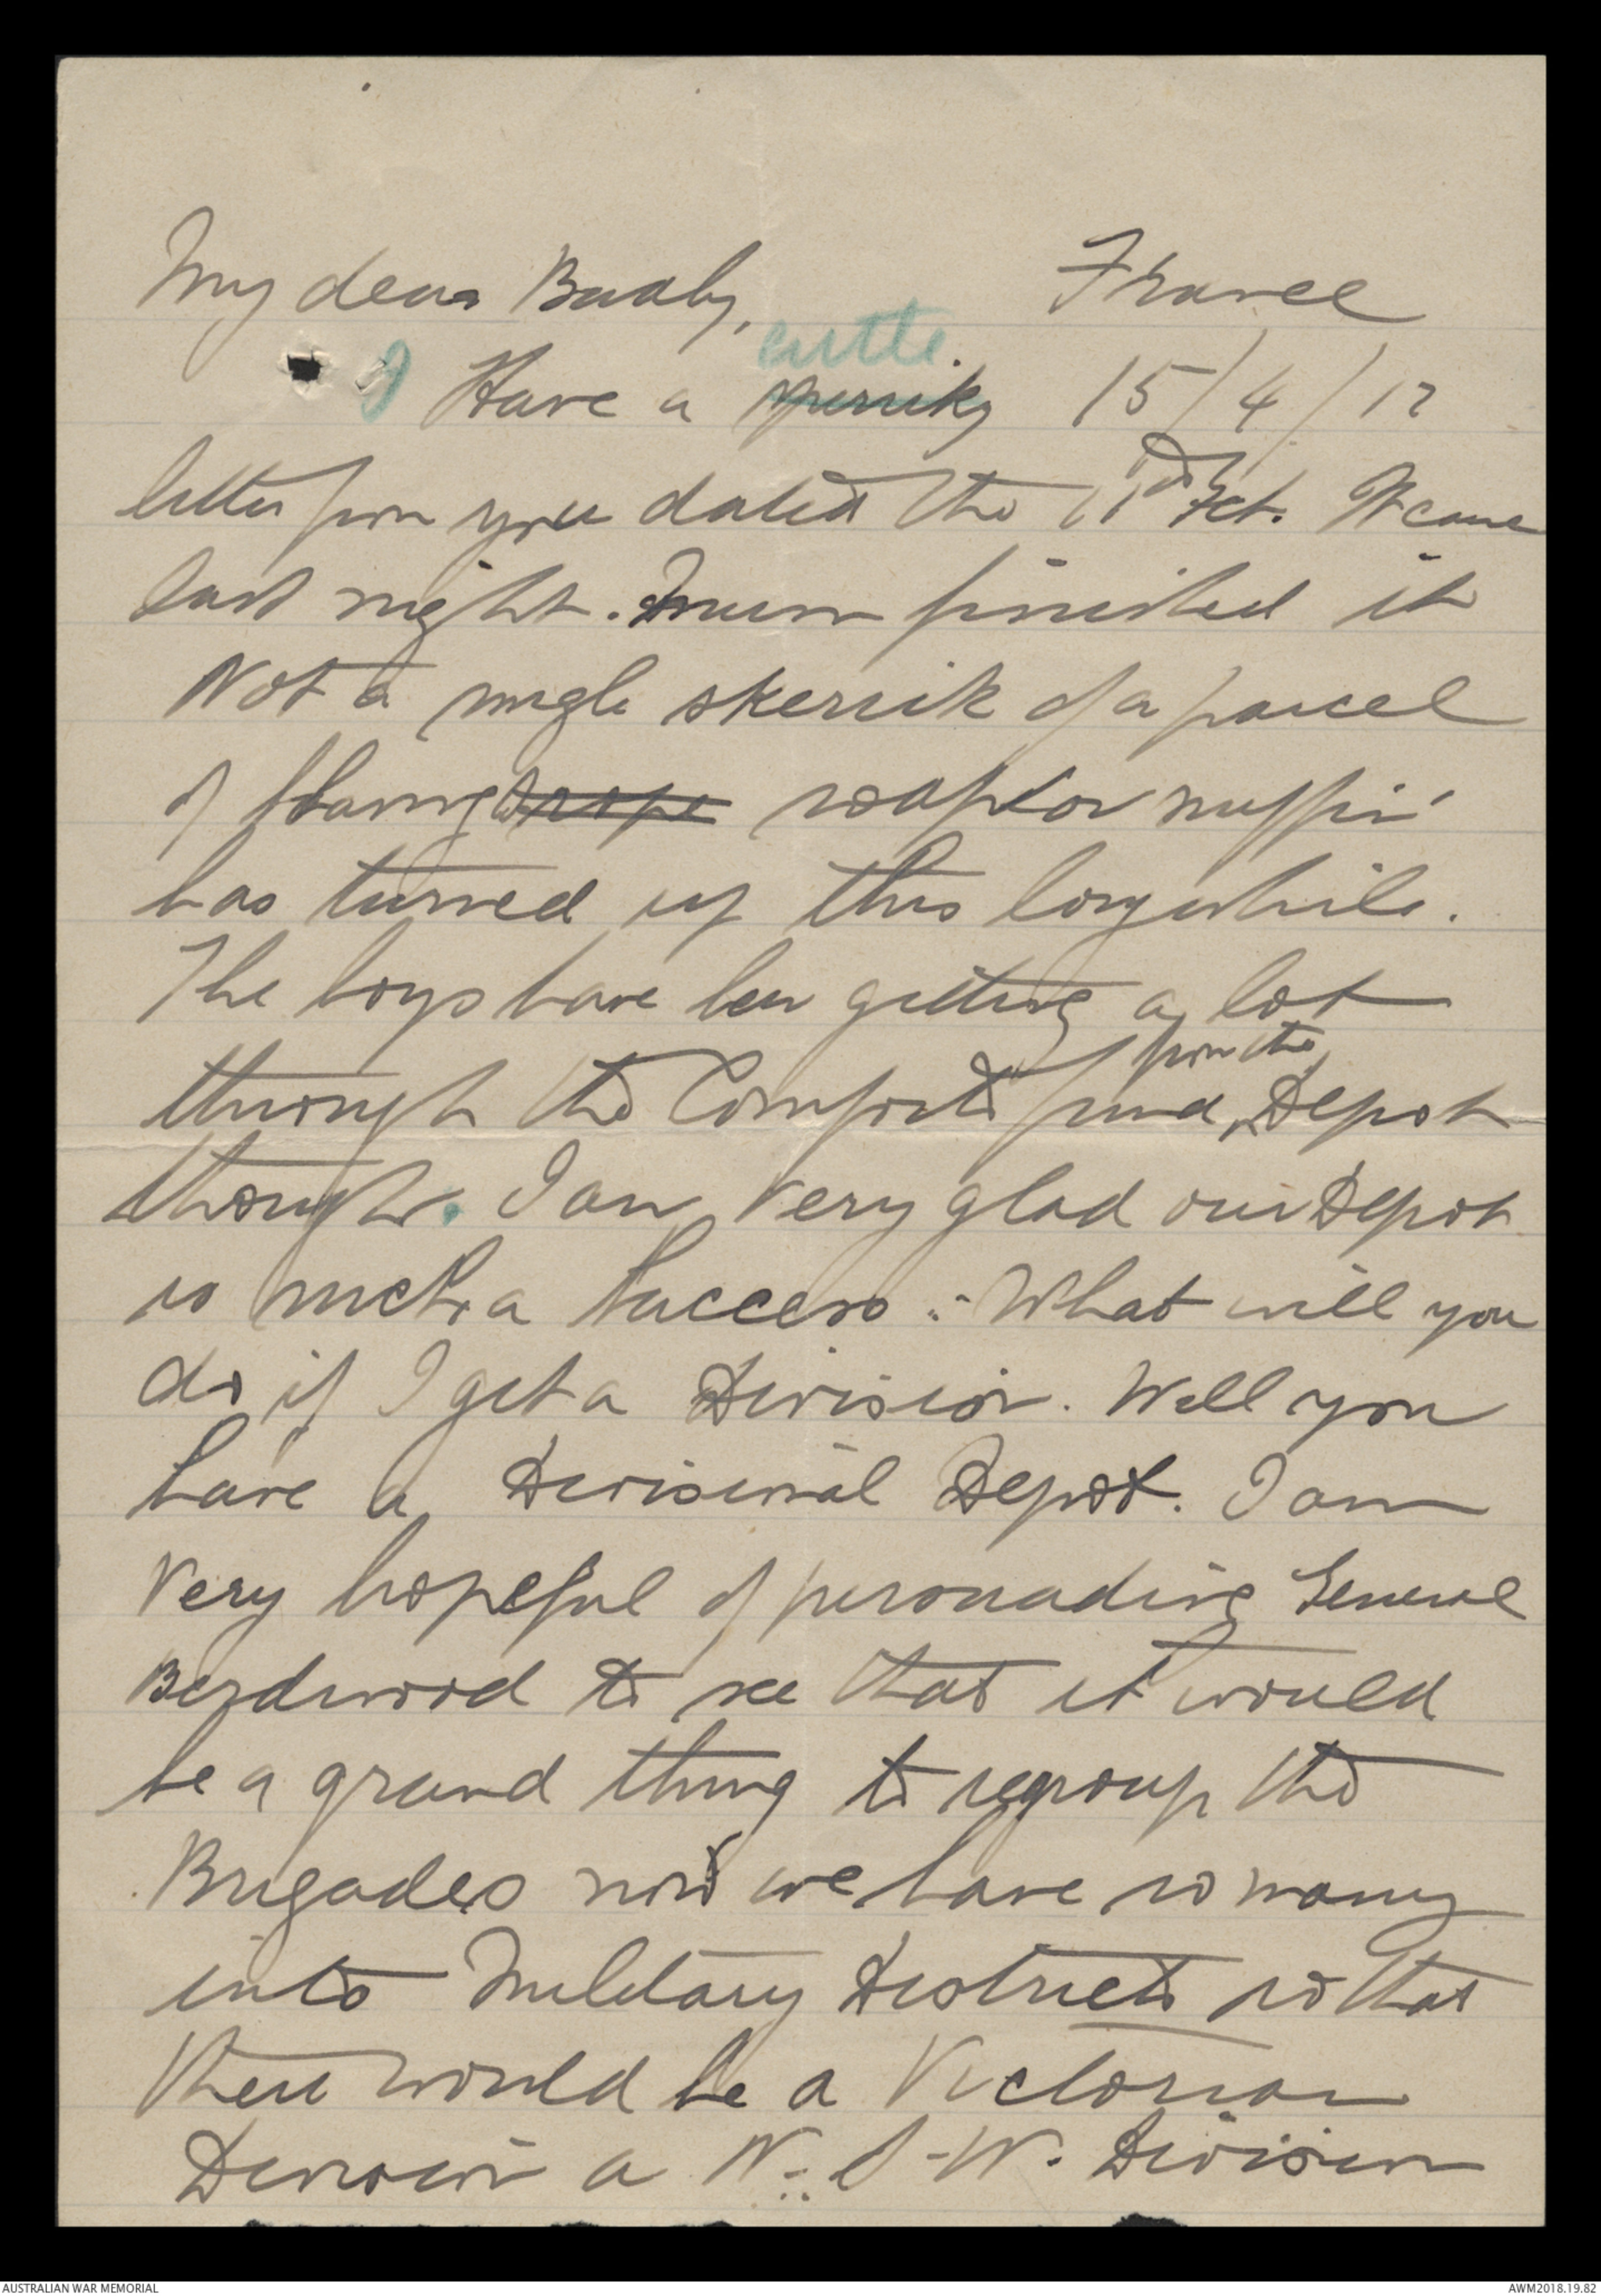 My dear Baaby, France
I Have a cuttle spersiky 15/4/17
letter from you dated the 11th Feb. It came
last night. Mum finished it
Not a single skerrik of a parcel
of shaving soape soap or nuffin'
has turned up this long while.
The boys have been getting a lot
through the Comforts fund, from the Depot
though. I am very glad our Depot
is such a success :- What will you
do if I get a Division. Will you
have a Divisional Depot. I am
very hopeful of persuading General
Birdwood to see that it would
be a grand thing to regroup the
Brigades now we have so many
into Military Districts so that
there would be a Victorian
Division a N.S.W. Division
AUSTRALIAN WAR MEMORIAL AWM2018.19.82